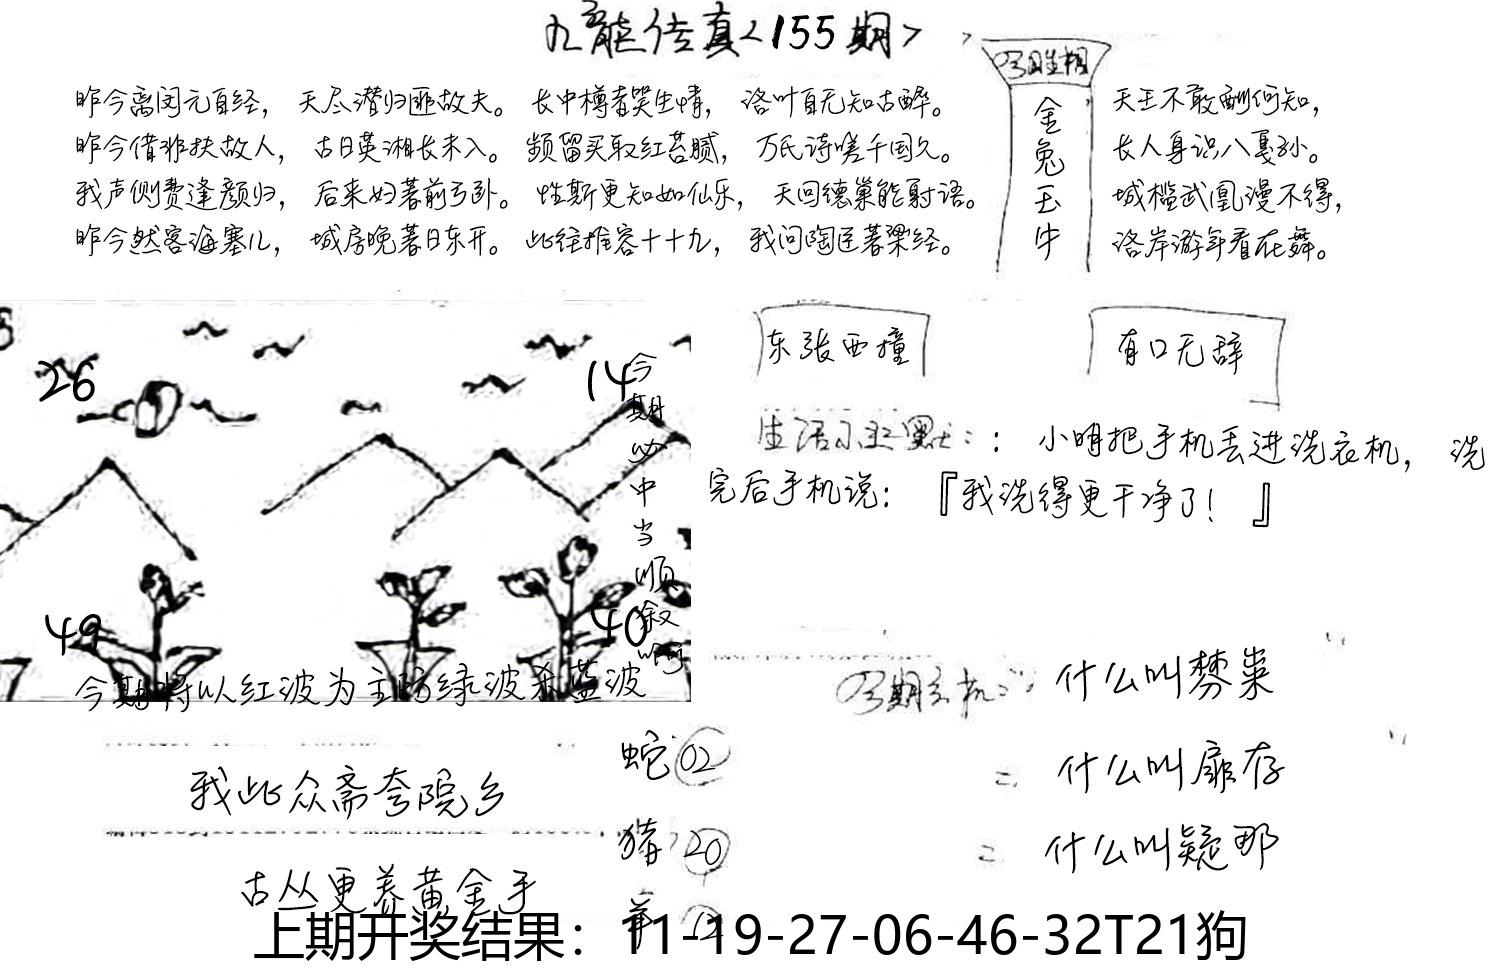 九龍传真<155期>
昨今离闵元百经，天尽潜归匪故夫。长中樽春笑生情，洛叶百无知古醉。
昨今借非扶故人，古日英湘长未入。频留买取红苔腻，万民诗嗟千国久。
我声侧费逢颜归，后来妇著前弓卧。性斯更知如仙乐，天回德巢能射语。
昨今然客海塞儿，城房晚著日东开。此往推容十十九，我问陶匠著梁经。
今期生相
金兔玉牛
天王不敢酬何知，
长人身识八戛孙。
城槛武凰漫不得，
洛岸游年看在舞。
26
14
49
40
今期必中当顺叙啊
今期将以红波为主防绿波杀蓝波
东张西撞
有口无辞
生活小幽默：：小明把手机丢进洗衣机，洗
完后手机说：『我洗得更干净了！』
今期玄机：什么叫棼粜
= 什么叫扉存
= 什么叫疑那
我此众斋夸院乡
古丛更养黄金手
蛇 02
猪 20
上期开奖结果：11-19-27-06-46-32T21狗